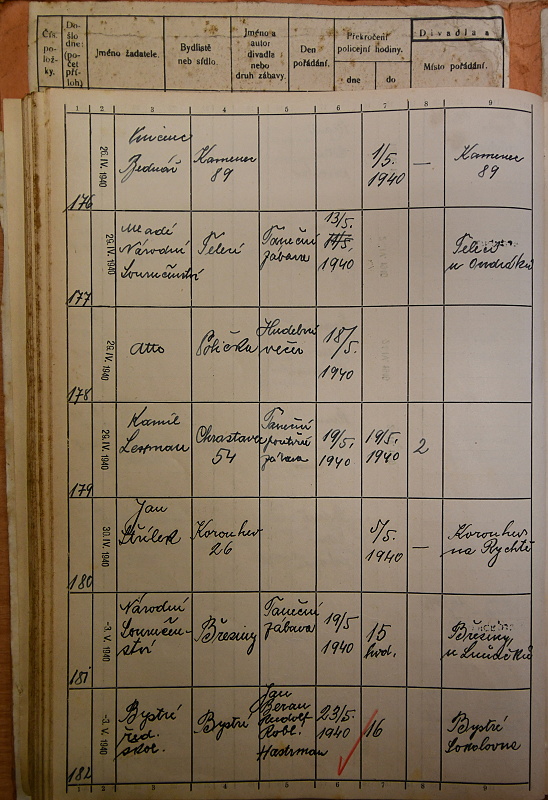 Čís. položky.
Došlo dne: (počet příloh)
Jméno žadatele.
Bydliště neb sídlo.
Jméno a autor divadla nebo druh zábavy.
Den pořádání.
Překročení policejní hodiny.
dne
do
Divadla a
Místo pořádání.
1 2 3 4 5 6 7 8 9
176
26. IV. 1940
Vincenc
Bednář
Kamenec
89
1/5.
1940
—
Kamenec
89
177
29. IV. 1940
Mladé
Národní
Souručenství
Telecí
Taneční
zábava
13/5.
1940
Telecí
u Ondráků
178
29. IV. 1940
Otto
Polička
Hudební
večer
18/
5.
1940
179
29. IV. 1940
Kamil
Chrastava
54
Taneční
pouťová
zábava
19/5.
1940
19/5.
1940
2
180
30. IV. 1940
Jan
Korouhev
26
5/5.
1940
—
Korouhev
na Rychtě
181
-3. V. 1940
Národní
Souručen-
ství
Březiny
Taneční
zábava
19/5
1940
15
hod.
Březiny,
182
-3. V. 1940
Bystré
řed.
škol.
Bystré
Jan
Beran
Rudolf
Hastrman
23/5.
1940
16
Bystré
Sokolovna
1 2 3 4 5 6 7 8 9